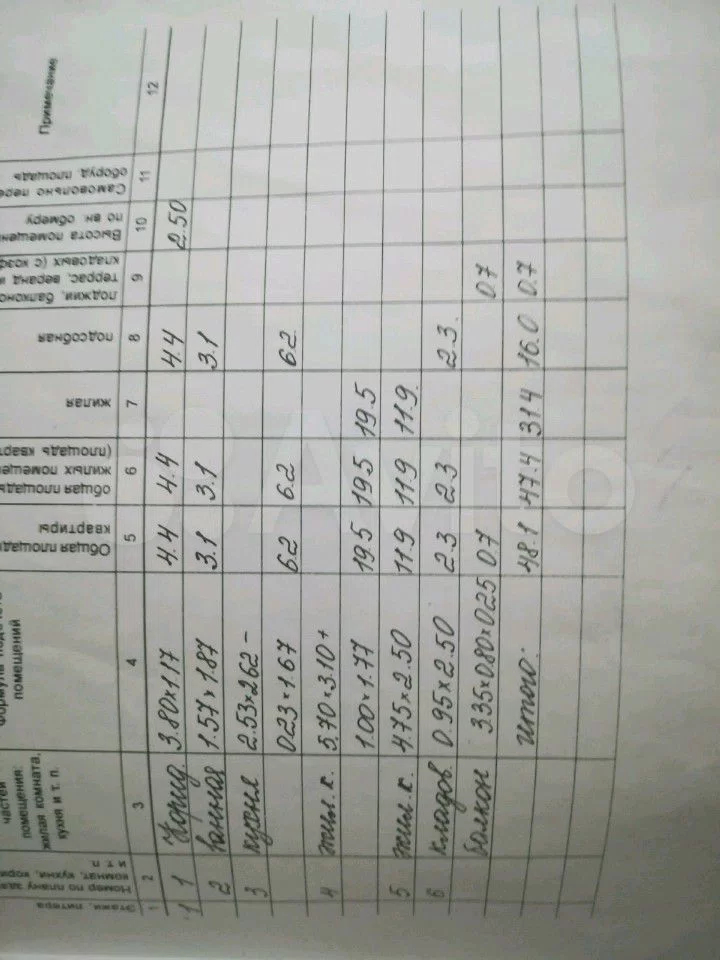 Этажи, литера
Номер по плану зда
комнат, кухни, кори
и т. п.
частей
помещения:
жилая комната,
кухня и т. п.
помещений
Общая площадь
квартиры
общая площадь
жилых помещен
(площадь кварт
жилая
подсобная
лоджии, балконо
террас, веранд и
кладовых (с коэф
Высота помещен
по вн. обмеру
Самовольно пере
оборуд. площадь
Примечание
1 2 3 4 5 6 7 8 9 10 11 12
1 1 Корид. 3.80x1.17 4.4 4.4 4.4 2.50
2 Ванная 1.57x1.87 3.1 3.1 3.1
3 кухня 2.53x2.62-
0.23x1.67 6.2 6.2 6.2
4 жил. к. 5.70x3.10+
1.00x1.77 19.5 19.5 19.5
5 жил. к. 4.75x2.50 11.9 11.9 11.9.
6 кладов. 0.95x2.50 2.3 2.3 2.3.
балкон 3.35x0.80x0.25 0.7 0.7
итого: 48.1 47.4 31.4 16.0 0.7
Avito